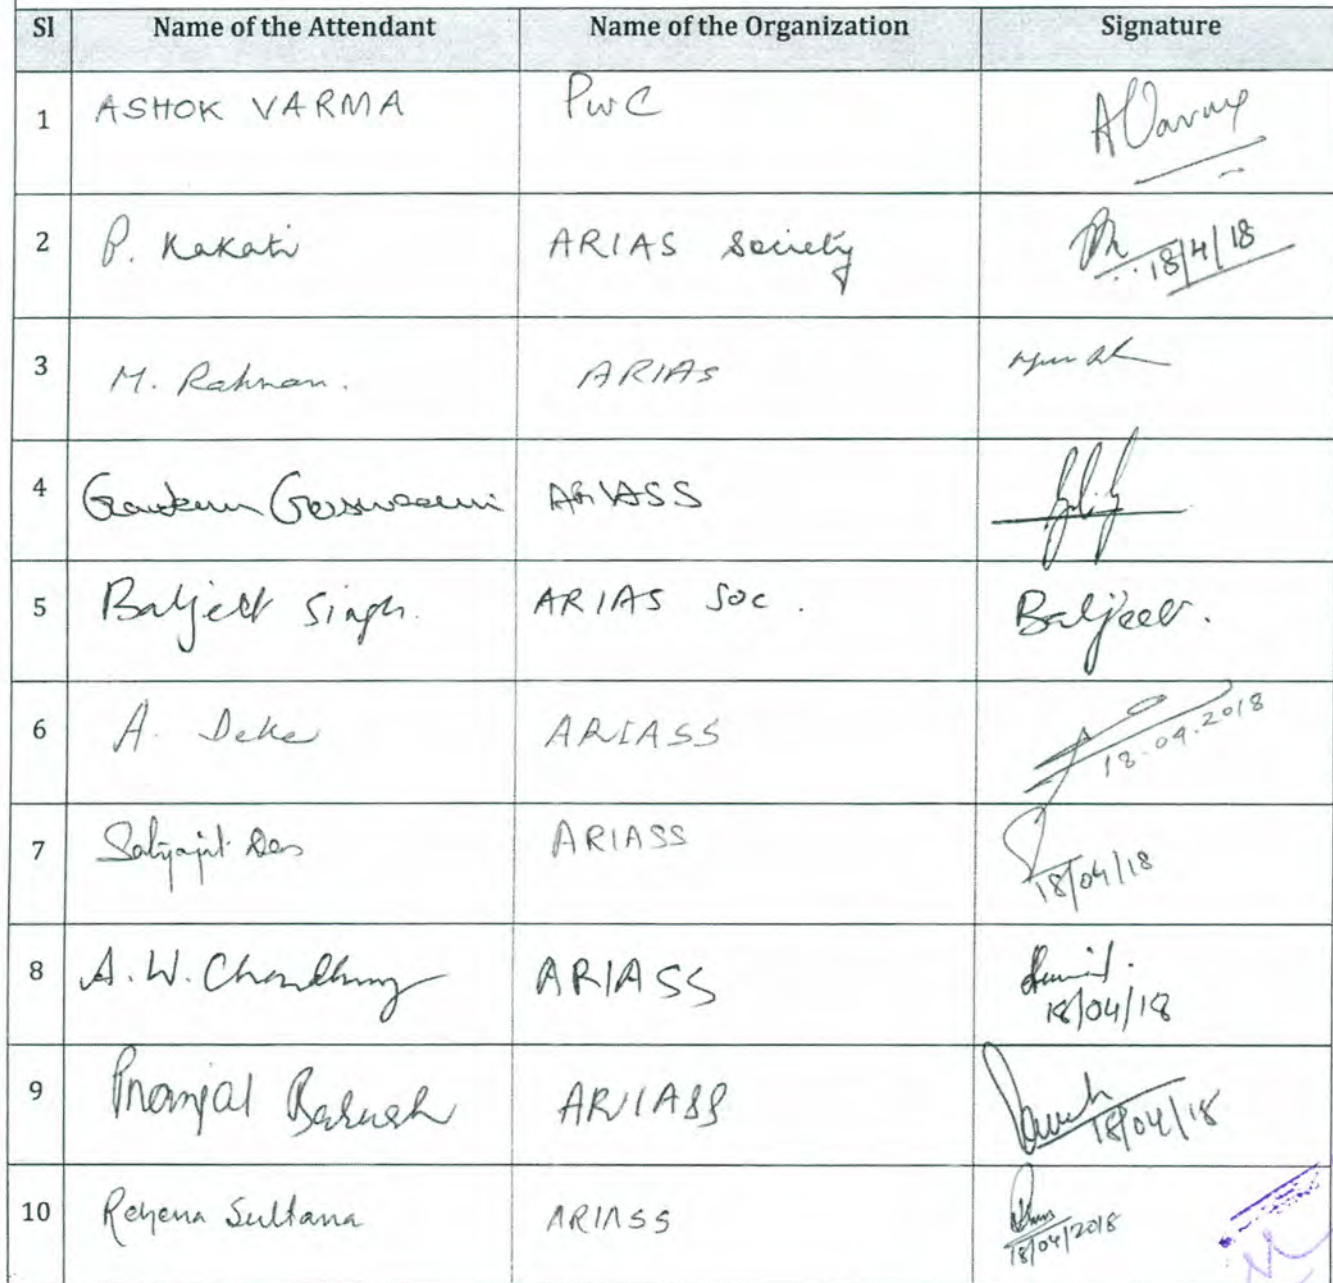 Sl Name of the Attendant Name of the Organization Signature
1 ASHOK VARMA PwC AVarma
2 P. Kakati ARIAS Society 18/4/18
3 M. Rahman. ARIAS
4 Gautam Goswami ARIASS
5 Baljeet Singh. ARIAS Soc. Baljeet.
6 A. Deka ARIASS 18.04.2018
7 Satyajit Das ARIASS 18/04/18
8 A.W. Choudhury ARIASS 18/04/18
9 Pranjal Baruah ARIASS 18/04/18
10 Rehena Sultana ARIASS 18/04/2018